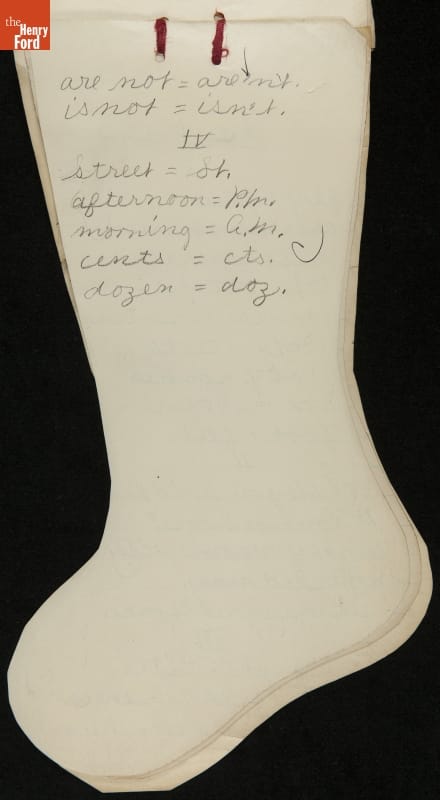 the
Henry
Ford
are not = are'n't.
is not = isn't.
IV
street = St.
afternoon = P.M.
morning = A.M.
cents = cts.
dozen = doz.